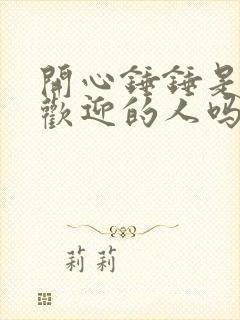 開心錘錘是
歡迎的人吗
莉莉